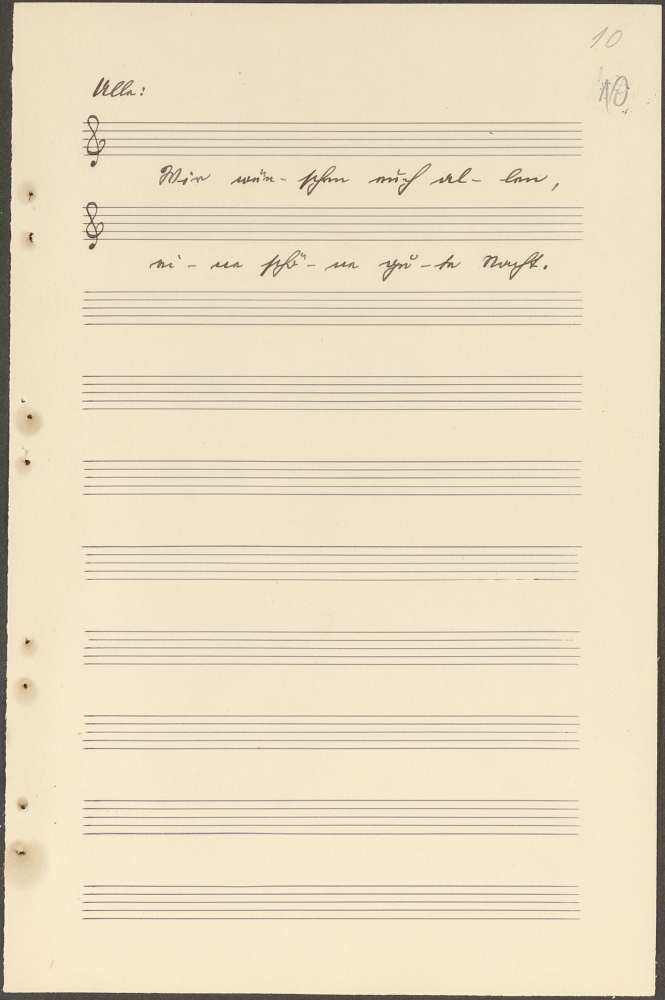 10
10
Alle:
Wir wün- schen euch al- len,
ei - ne schö- ne gu - te Nacht.